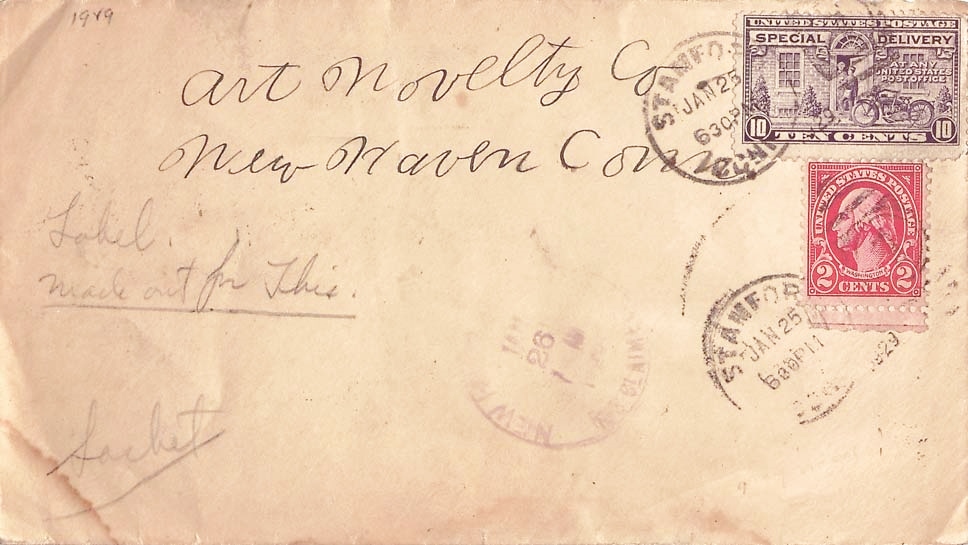 1949
UNITED STATES POSTAGE
SPECIAL DELIVERY
AT ANY
UNITED STATES
POST OFFICE
10 TEN CENTS 10
Art Novelty Co
New Haven Conn
STAMFORD
JAN 25
630PM
CONN.
UNITED STATES POSTAGE
WASHINGTON
2 CENTS 2
Label.
made out for This.
STAMFOR
JAN 25
600PM
1929
JAN
26
NEW
Sachet